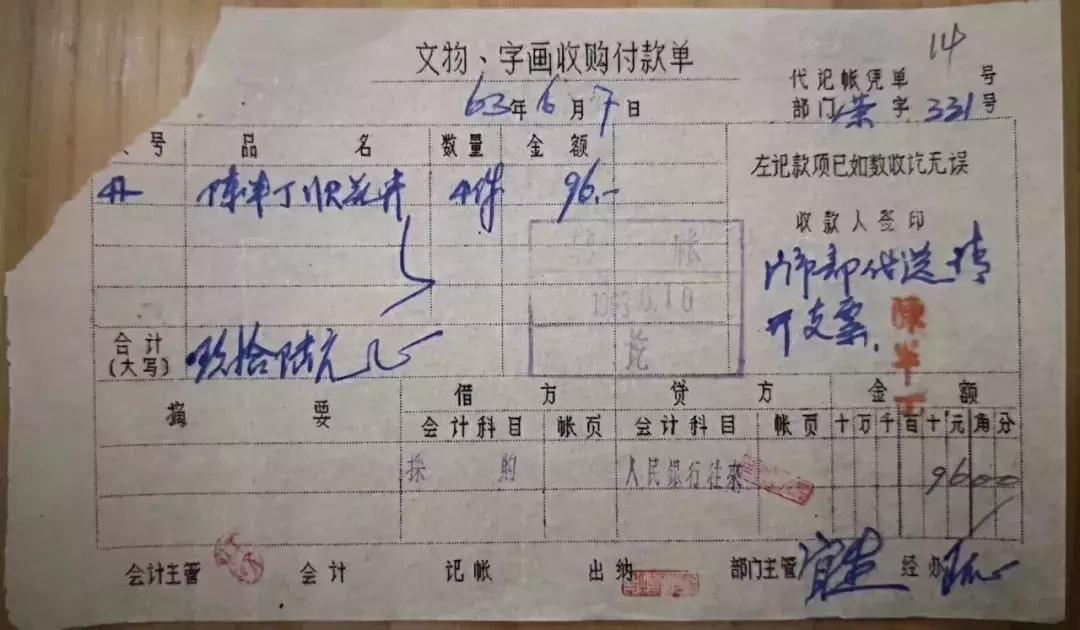 14
文物、字画收购付款单
代记帐凭单 号
63年6月7日
部门 字 331号
号 品名 数量 金额
左记款项已如数收讫无误
陈半丁 花卉 4件 96.—
收款人签印
帐
代送请
开支票.
陳半丁
1963.
讫
合计
(大写)
玖拾陆元
摘要 借方 贷方 金额
会计科目 帐页 会计科目 帐页 十万千百十元角分
採购 人民银行往来 9600
会计主管 会计 记帐 出纳 部门主管 经办